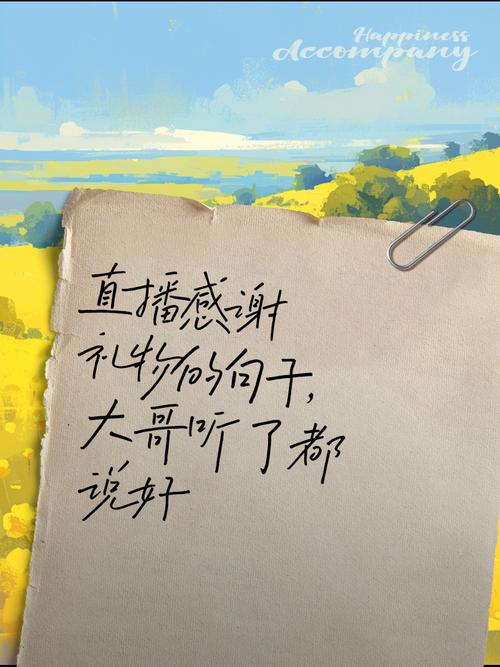 Happiness
Accompany
直播感谢
礼物的句子,
大哥听了都
说好